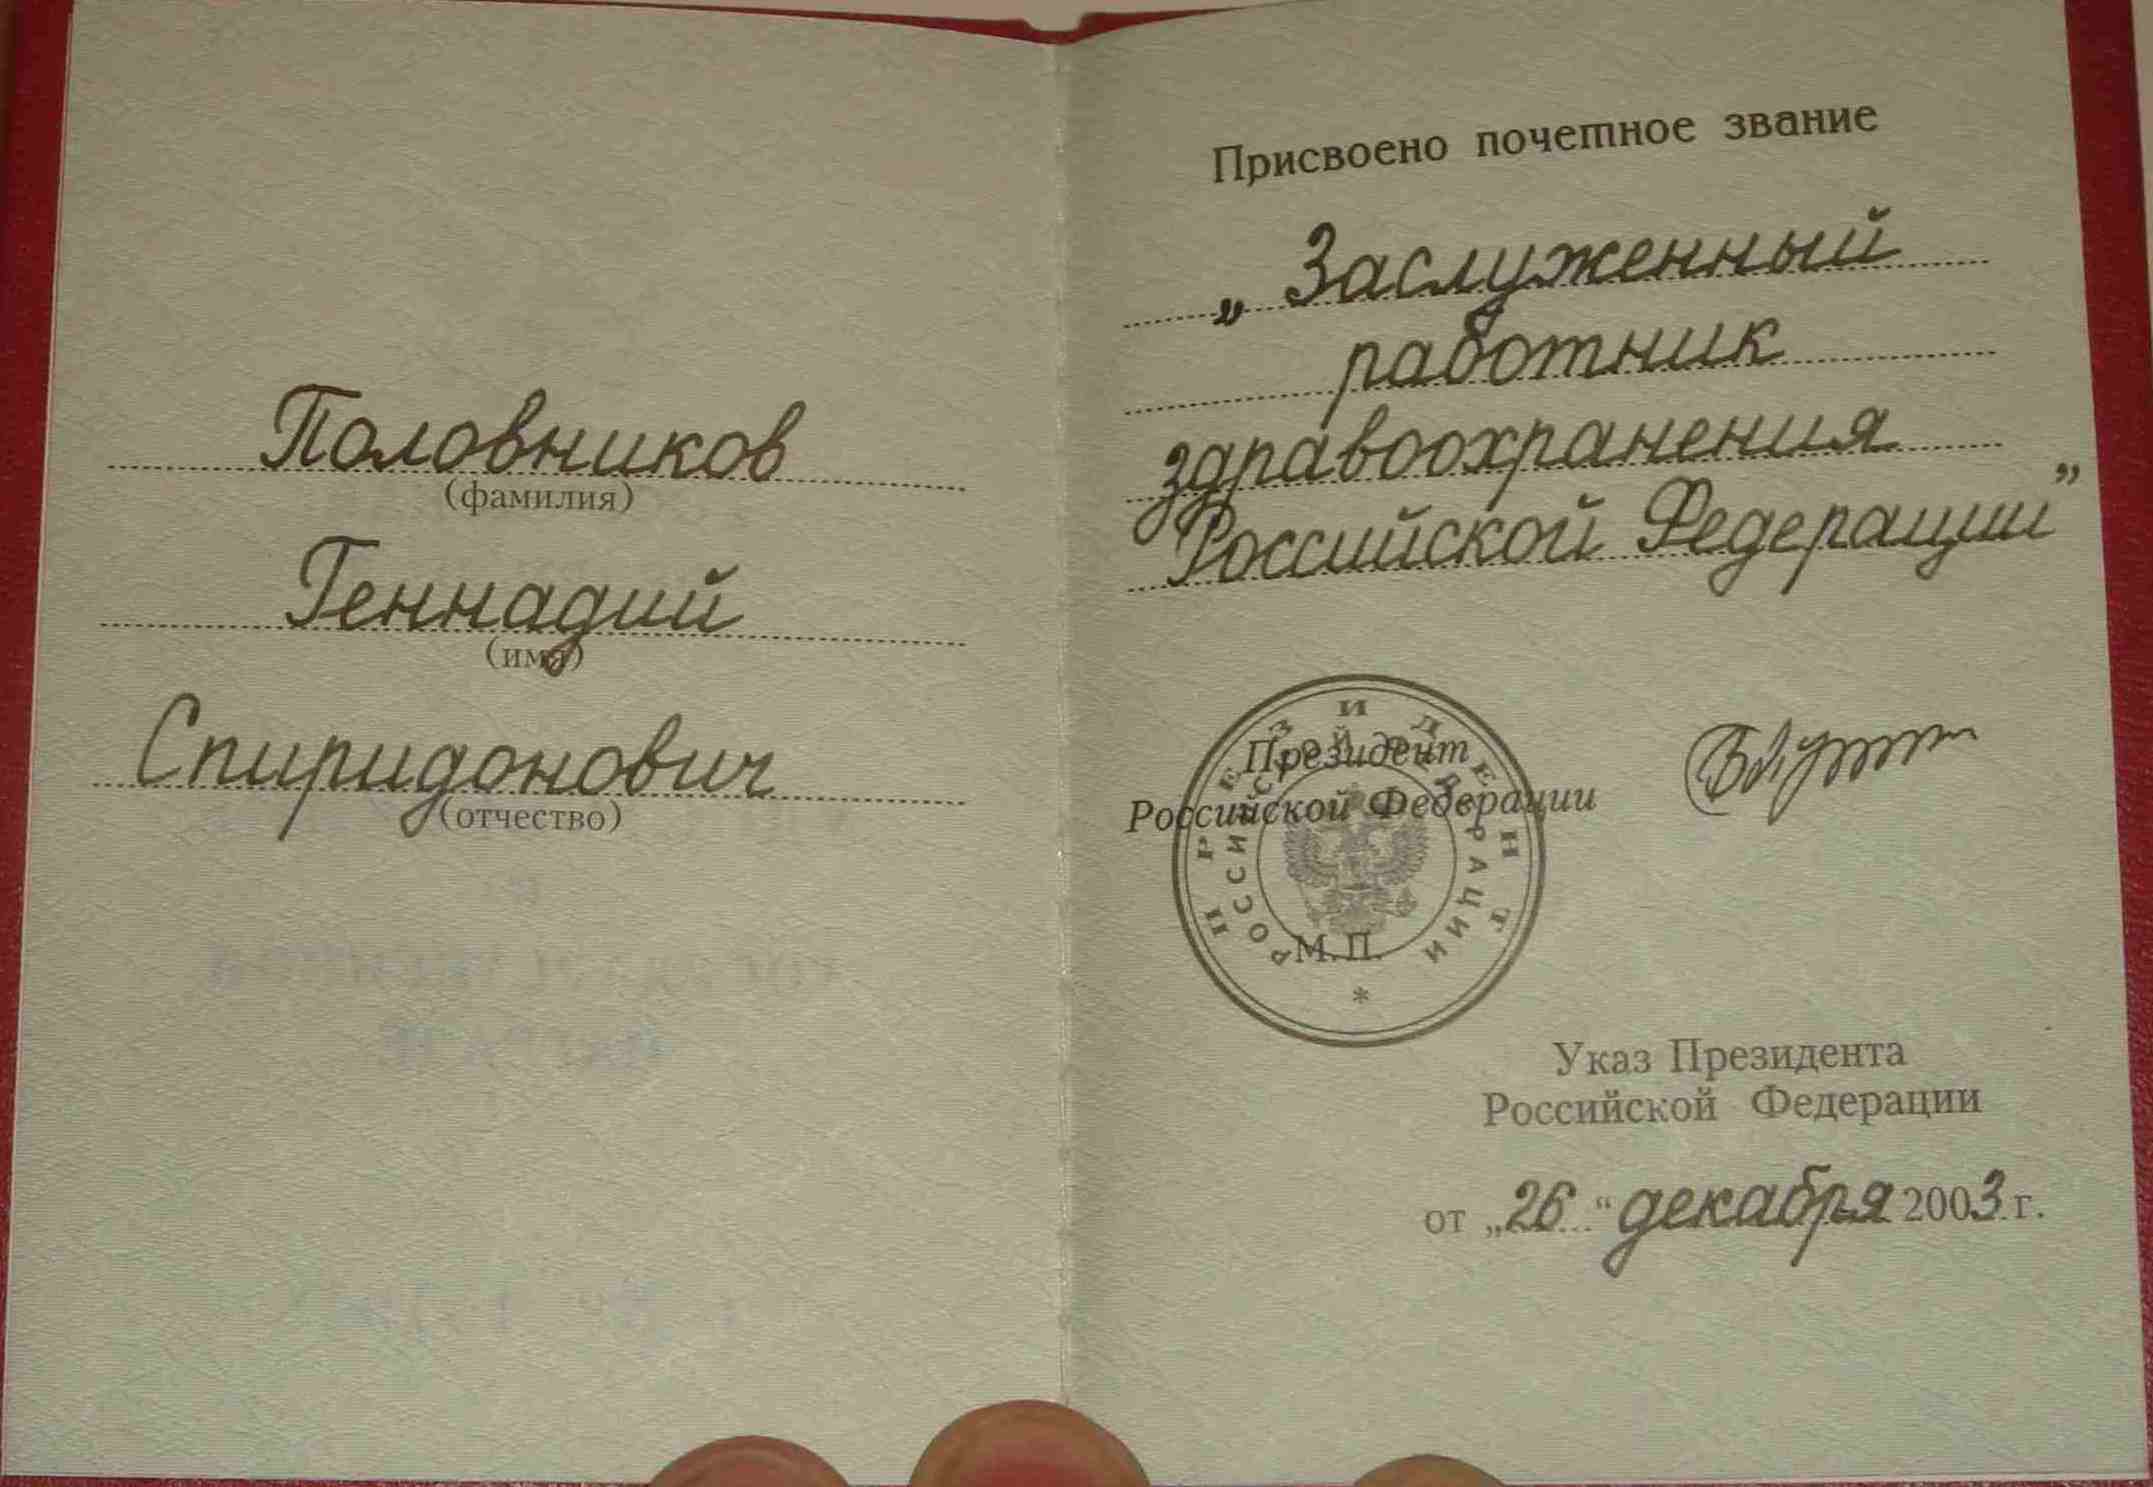 Половников
(фамилия)
Геннадий
(имя)
Спиридонович
(отчество)
Присвоено почетное звание
„Заслуженный
работник
здравоохранения
Российской Федерации”
Президент
Российской Федерации
ПРЕЗИДЕНТ
РОССИЙСКОЙ ФЕДЕРАЦИИ
*
М.П.
Указ Президента
Российской Федерации
от „26“ декабря 2003 г.